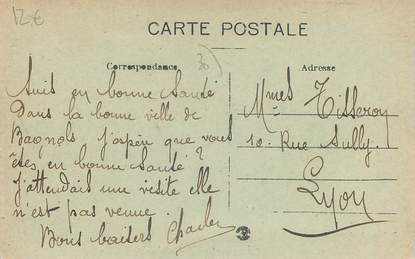 12€
CARTE POSTALE
Correspondance
Adresse
Suis en bonne Santé
Dans la bonne ville de
Bagnols j'espère que vous
êtes en bonne Santé ?
J'attendais une visite elle
n'est pas venue.
Bons baisers Charles
Mmes Tisseron
10. Rue Sully.
Lyon